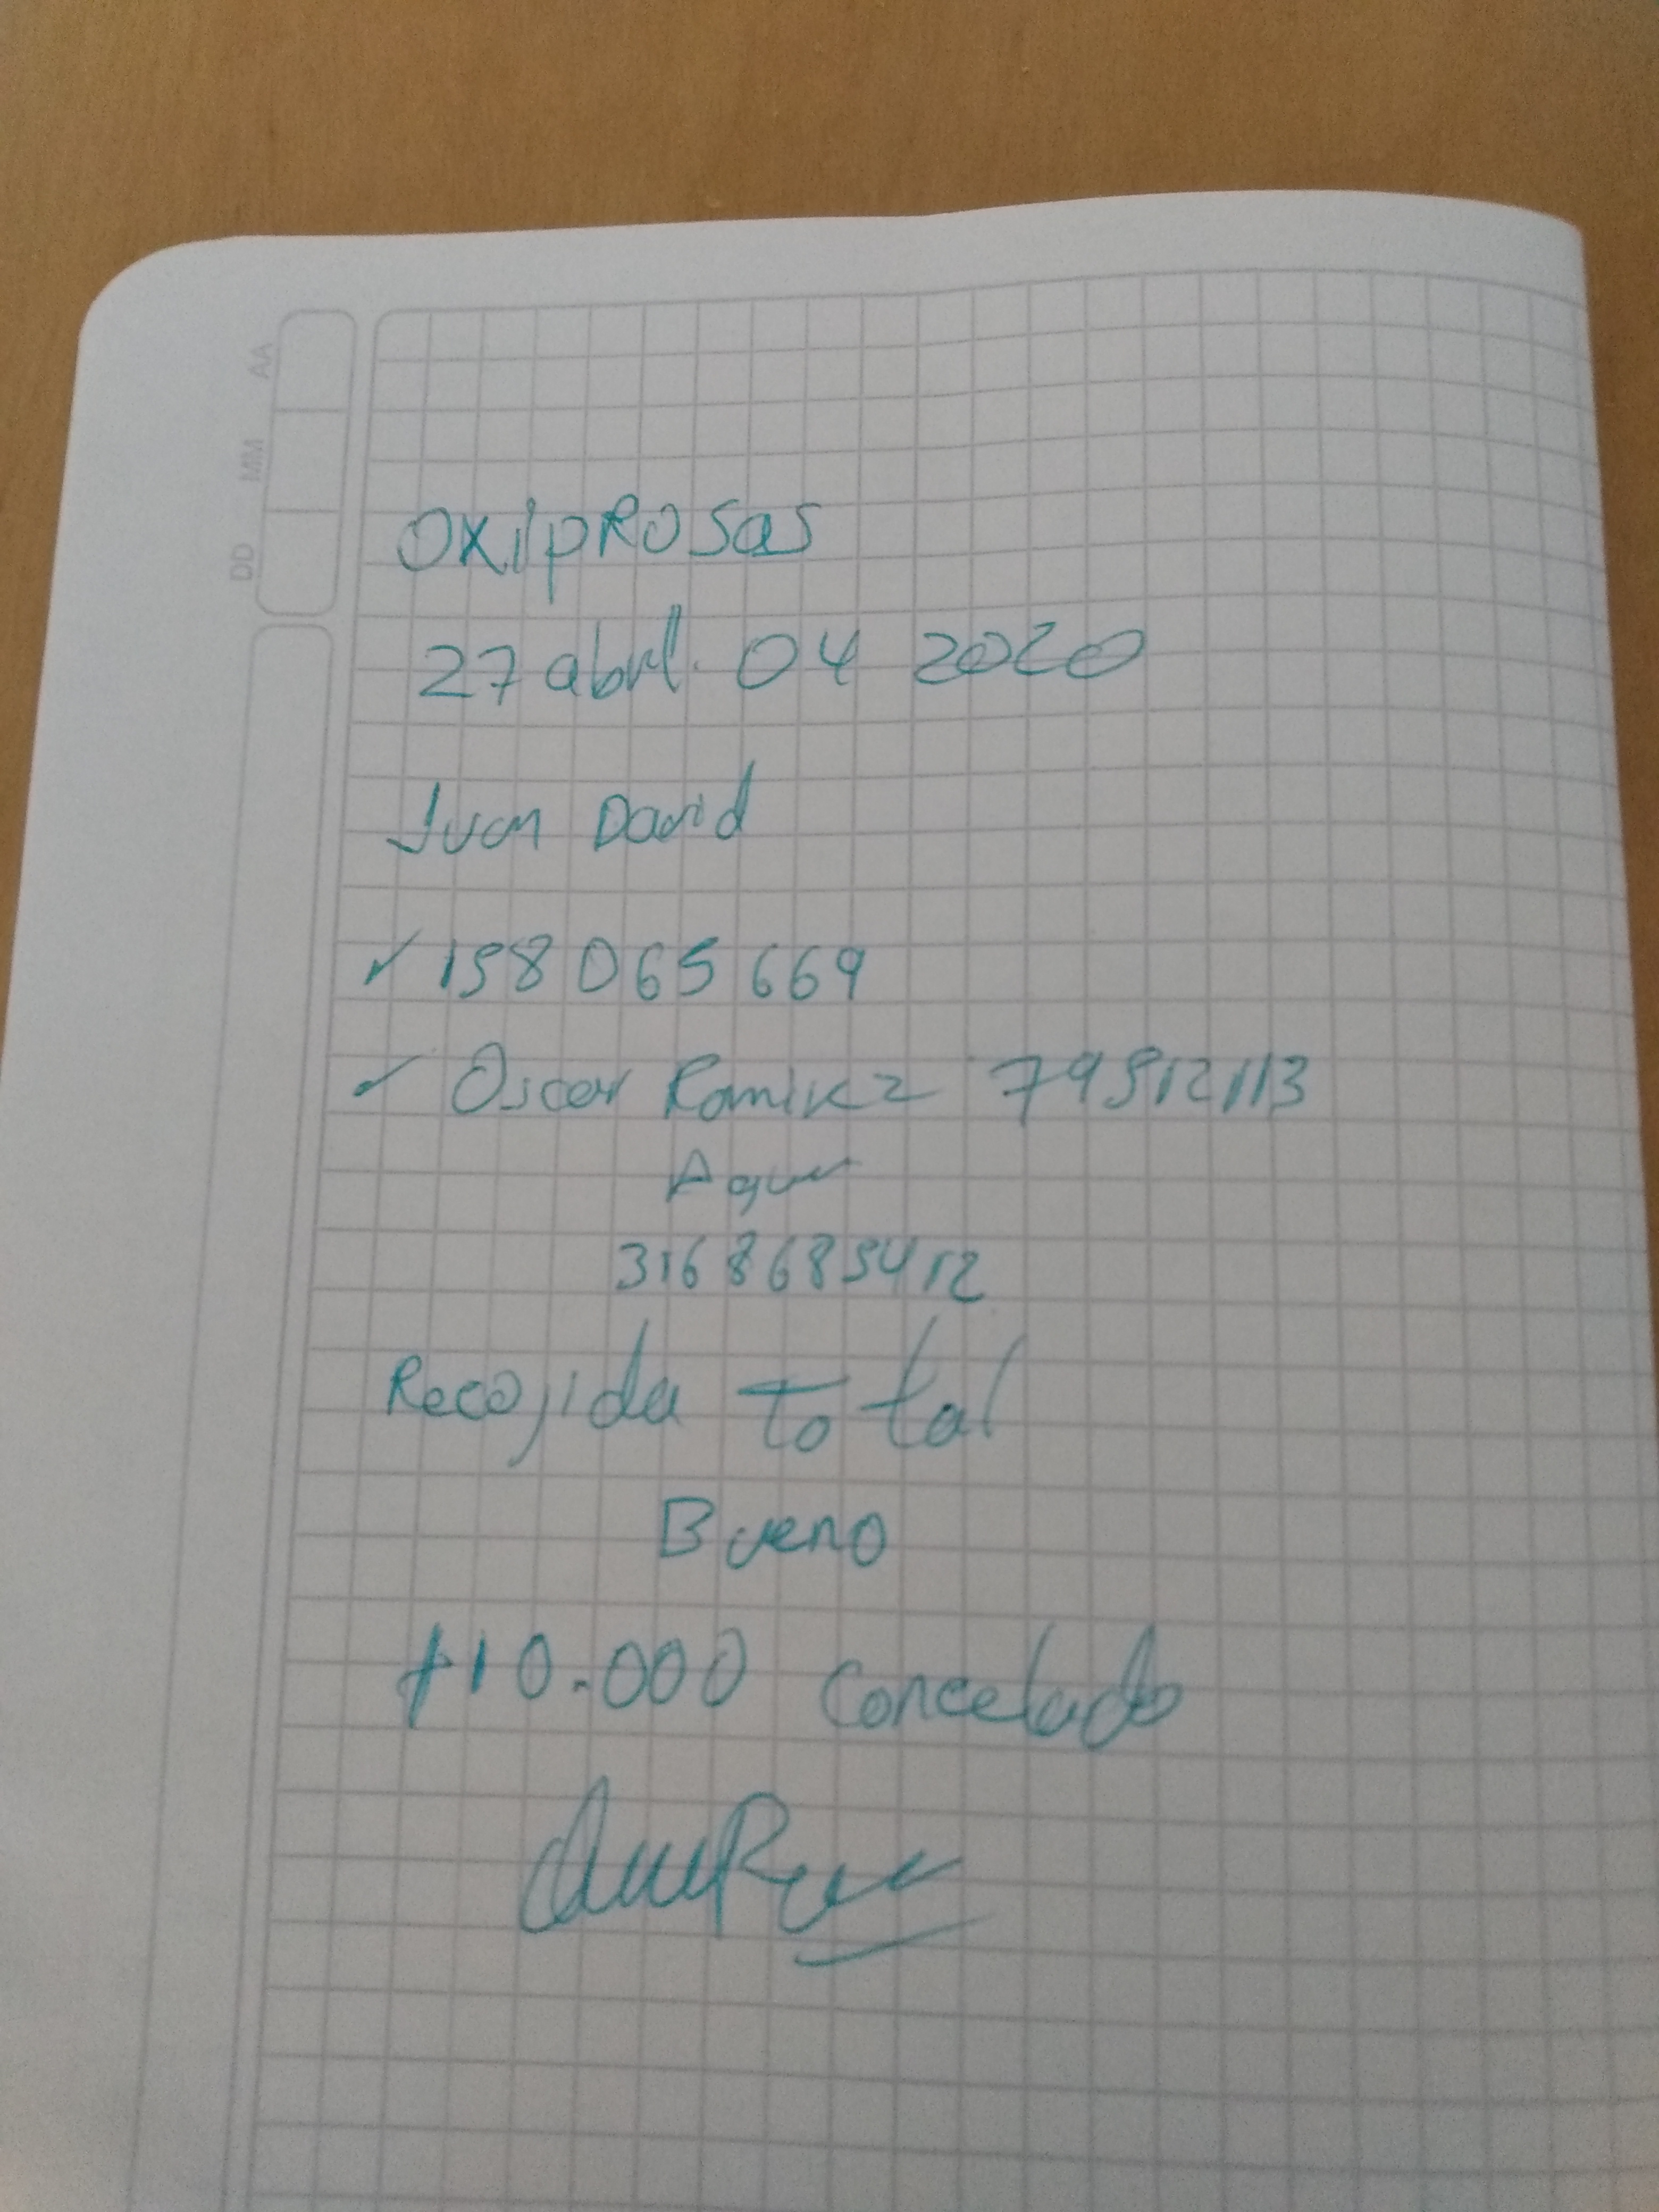 AA
MM
DD
OXIPROSAS
27 abril. 04 2020
Juan David
✓ 198 065 669
✓ Oscar Ramirez 79512113
3168685412
Recojida total
Bueno
110.000 Cancelado